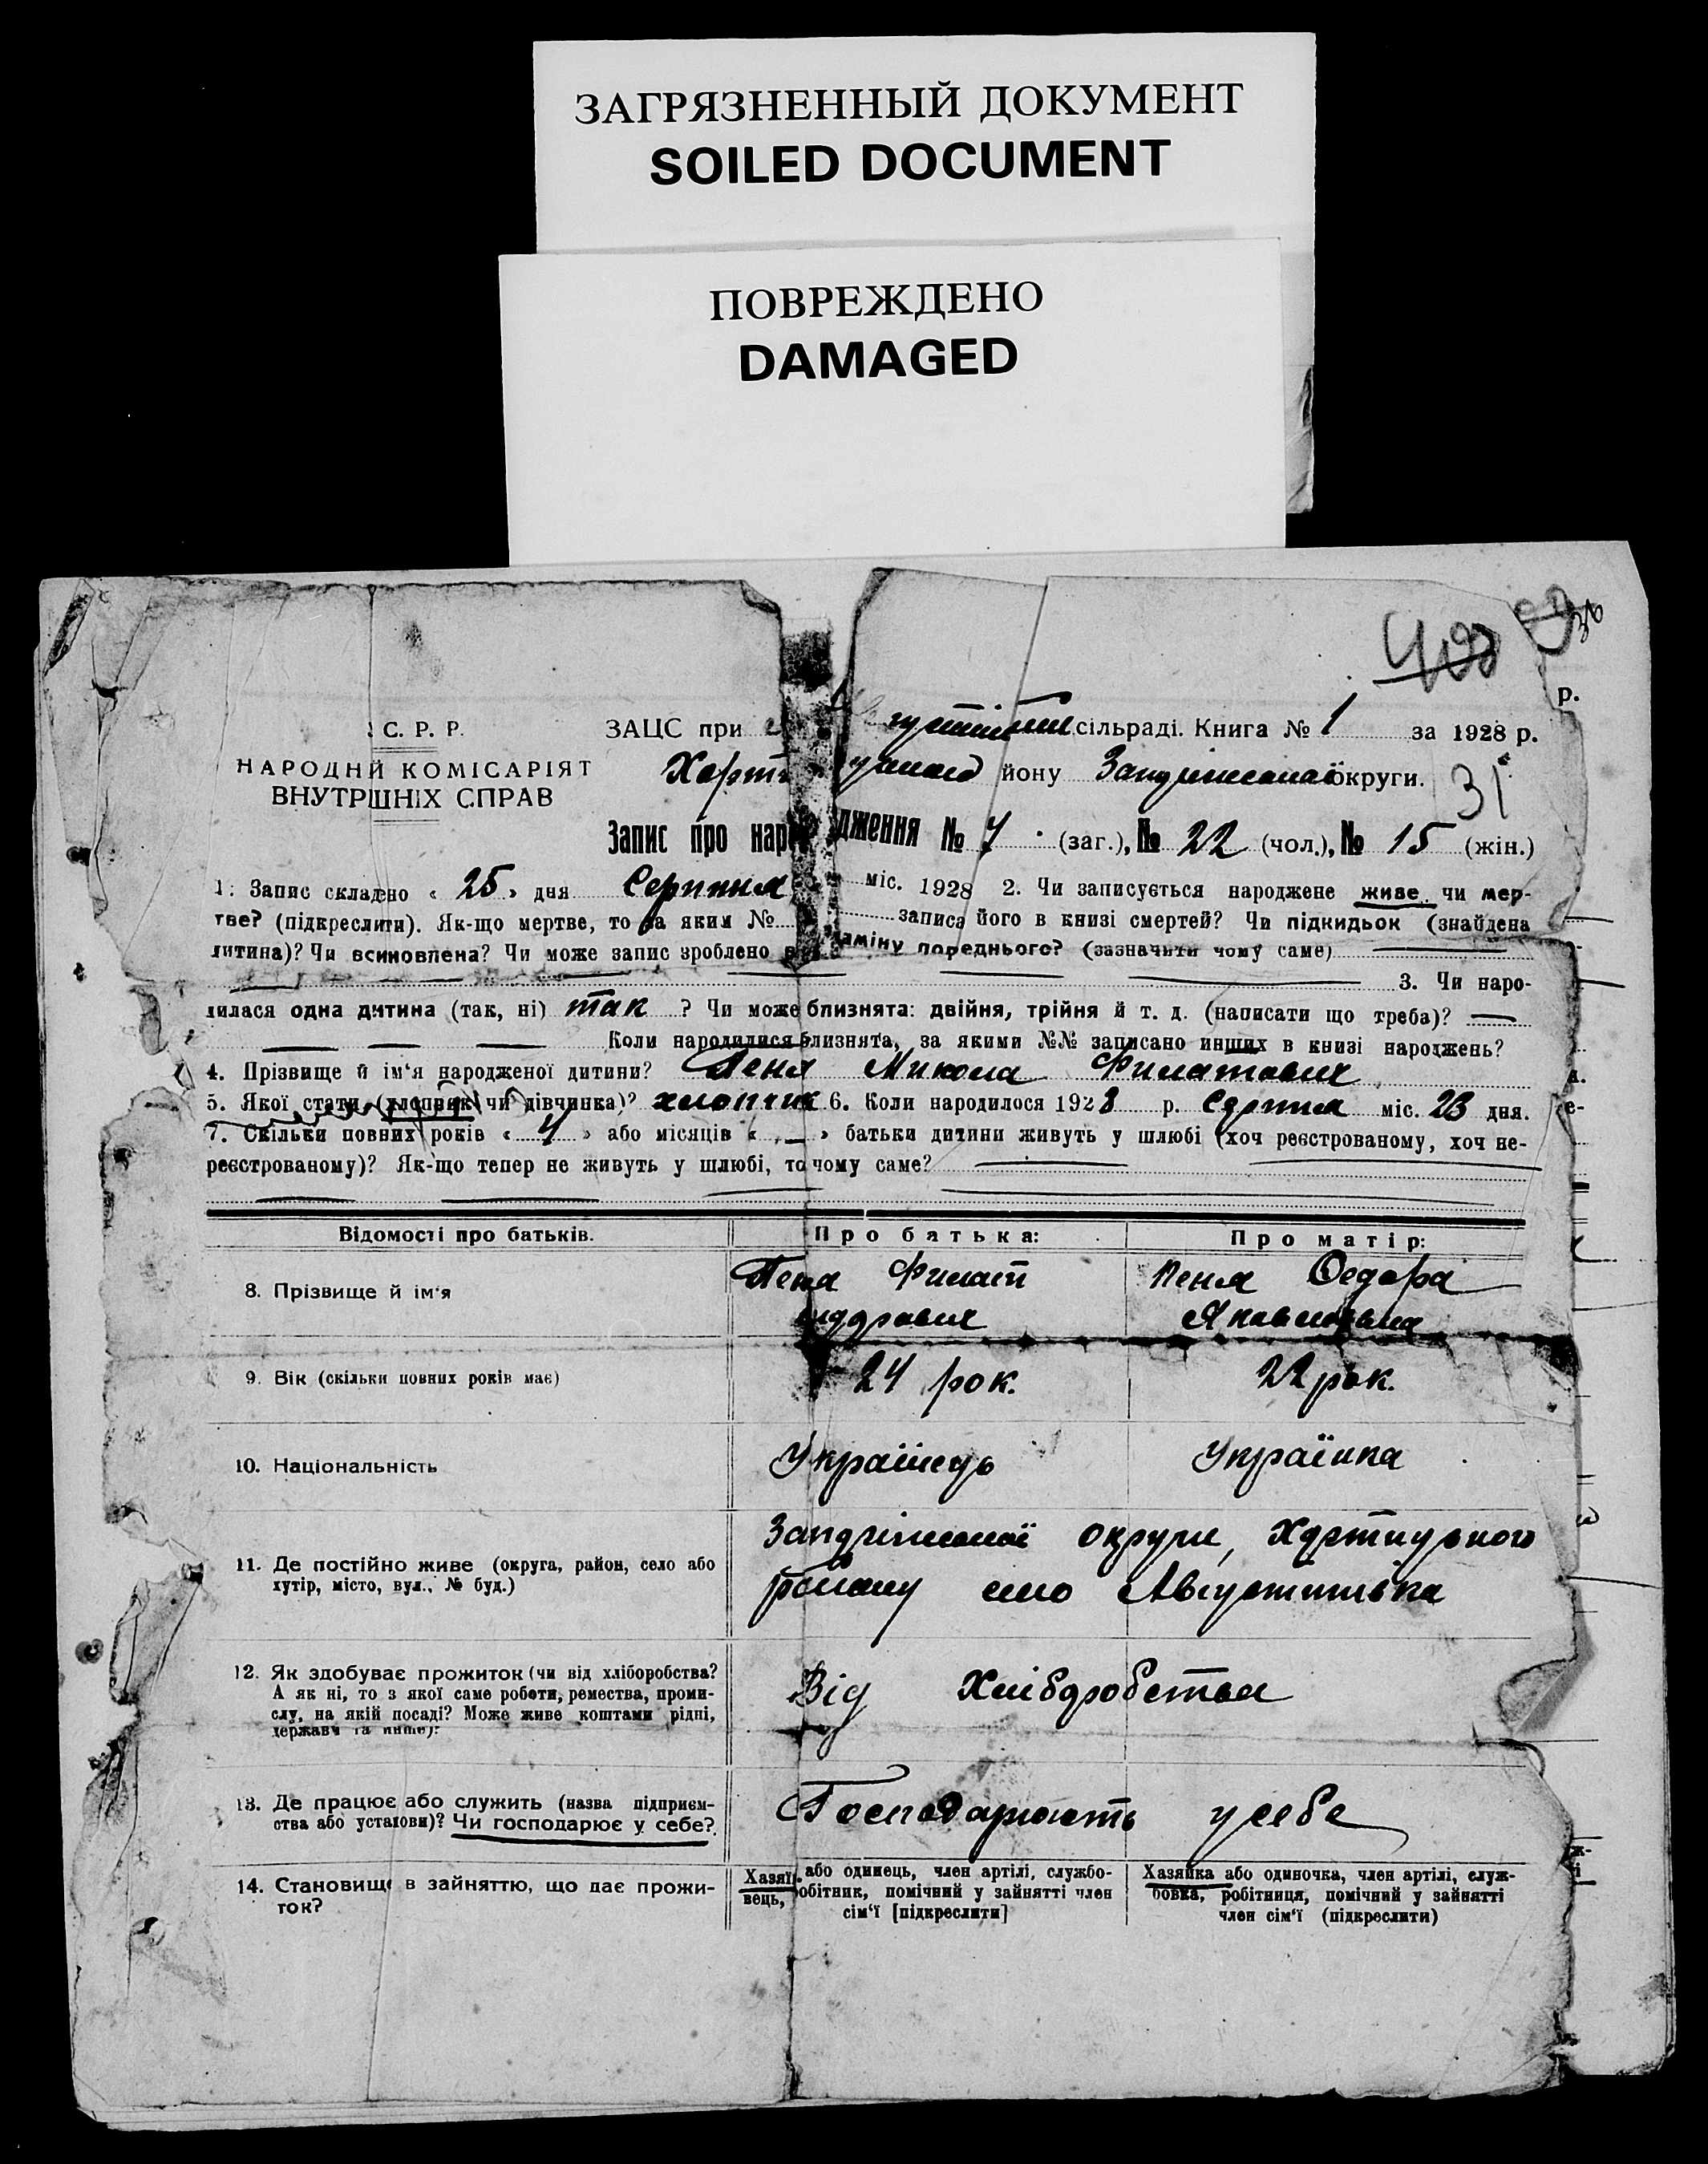 ЗАГРЯЗНЕННЫЙ ДОКУМЕНТ
SOILED DOCUMENT
ПОВРЕЖДЕНО
DAMAGED
р.
С. Р. Р.
НАРОДНИЙ КОМІСАРІЯТ
ВНУТРІШНІХ СПРАВ
ЗАЦС при сільраді. Книга № 1 за 1928 р.
Хорти йону округи. 31
Запис про народження № 7 (заг.), № 22 (чол.), № 15 (жін.)
1. Запис складено « 25 » дня Серпня міс. 1928 2. Чи записується народжене живе чи мер-
тве? (підкреслити). Як-що мертве, то за яким № записа його в книзі смертей? Чи підкидьок (знайдена
дитина)? Чи всиновлена? Чи може запис зроблено в заміну попереднього? (зазначити чому саме)
3. Чи наро-
дилася одна дитина (так, ні) так ? Чи може близнята: двійня, трійня й т. д. (написати що треба)?
Коли народилися близнята, за якими №№ записано инших в книзі народжень?
4. Прізвище й ім'я народженої дитини? Пеня Микола Филатович
5. Якої стати (хлопчик чи дівчинка)? хлопчик 6. Коли народилося 1928 р. Серпня міс. 23 дня.
7. Скільки повних років « 4 » або місяців « — » батьки дитини живуть у шлюбі (хоч реєстрованому, хоч не-
реєстрованому)? Як-що тепер не живуть у шлюбі, то чому саме?
Відомості про батьків. Про батька: Про матір:
8. Прізвище й ім'я Пеня Филат Пеня Федора
Яковлевна
9. Вік (скільки повних років має) 24 рок. 22 рок.
10. Національність Українець Українка
11. Де постійно живе (округа, район, село або
хутір, місто, вул., № буд.)
округи, Хортицького
району село Августинівка
12. Як здобуває прожиток (чи від хліборобства?
А як ні, то з якої саме роботи, ремества, проми-
слу, на якій посаді? Може живе коштами рідні,
держави та инше)?
Від Хліборобства
13. Де працює або служить (назва підприєм-
ства або установи)? Чи господарює у себе?
Господарюють у себе
14. Становище в зайняттю, що дає прожи-
ток?
Хазяї або одинець, член артілі, службо-
вець, робітник, помічний у зайнятті член
сім'ї [підкреслити]
Хазяйка або одиночка, член артілі, служ-
бовка, робітниця, помічний у зайнятті
член сім'ї (підкреслити)